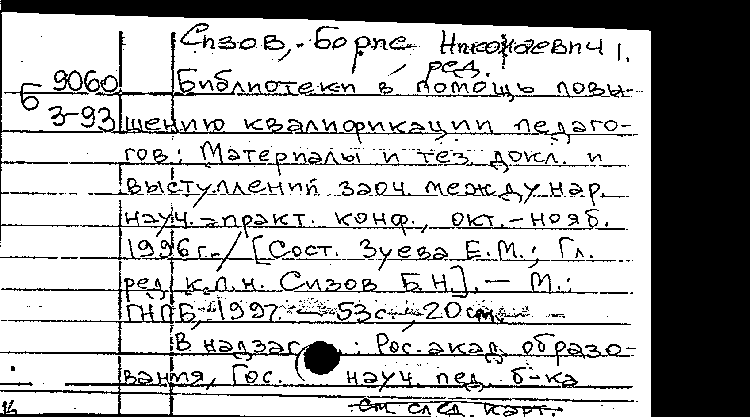 Сизов, Борис Николаевич,
ред.
Б 9060
3-93
Библиотеки в помощь повы-
шению квалификации педаго-
гов: Материалы и тез. докл. и
выступлений заоч. междунар.
науч.-практ. конф., окт.-нояб.
1996 г. / [Сост. Зуева Е.М.; Гл.
ред. к.п.н. Сизов Б.Н.]. — М.:
ГНПБ, 1997. — 53 с.; 20 см. —
В надзаг.: Рос. акад. образо-
вания, Гос. науч. пед. б-ка
см. след. карт.